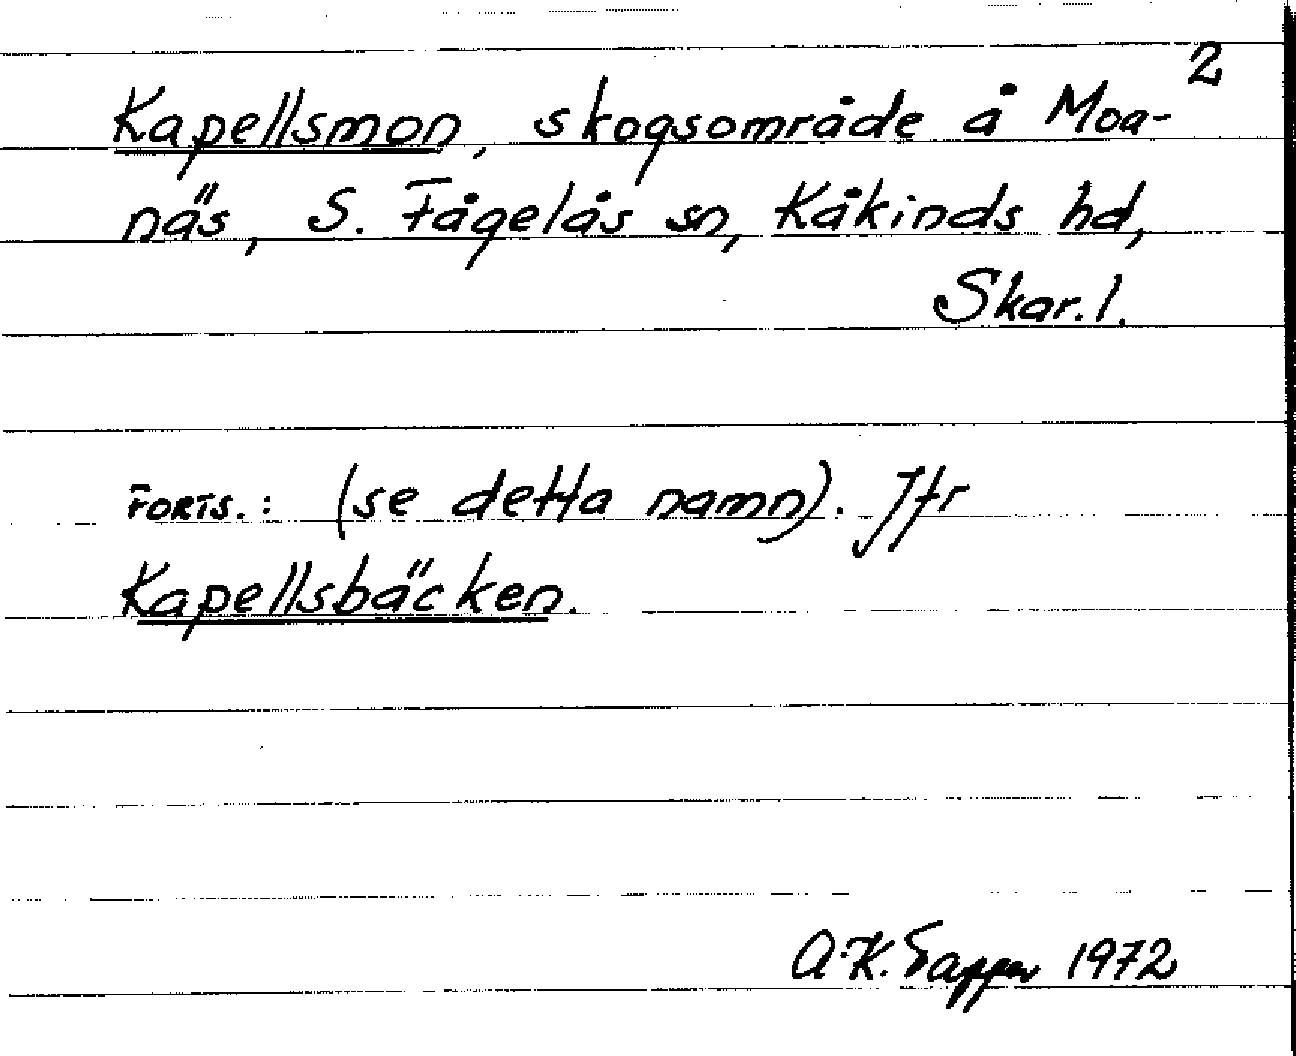 2
Kapellsmon, skogsområde å Moa-
näs, S. Fågelås sn, Kåkinds hd,
Skar. l.
FORTS.: (se detta namn). Jfr
Kapellsbäcken.
A.-K. 1972